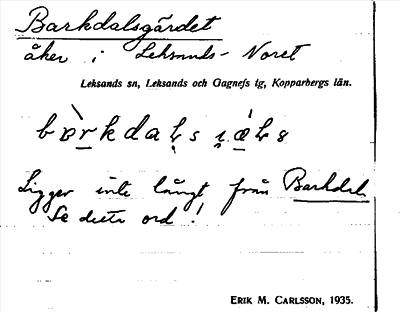 Barkdalsgärdet
åker i Leksands-Noret
Leksands sn, Leksands och Gagnefs tg, Kopparbergs län.
Ligger inte långt från Barkdal
Se detta ord!
ERIK M. CARLSSON, 1935.